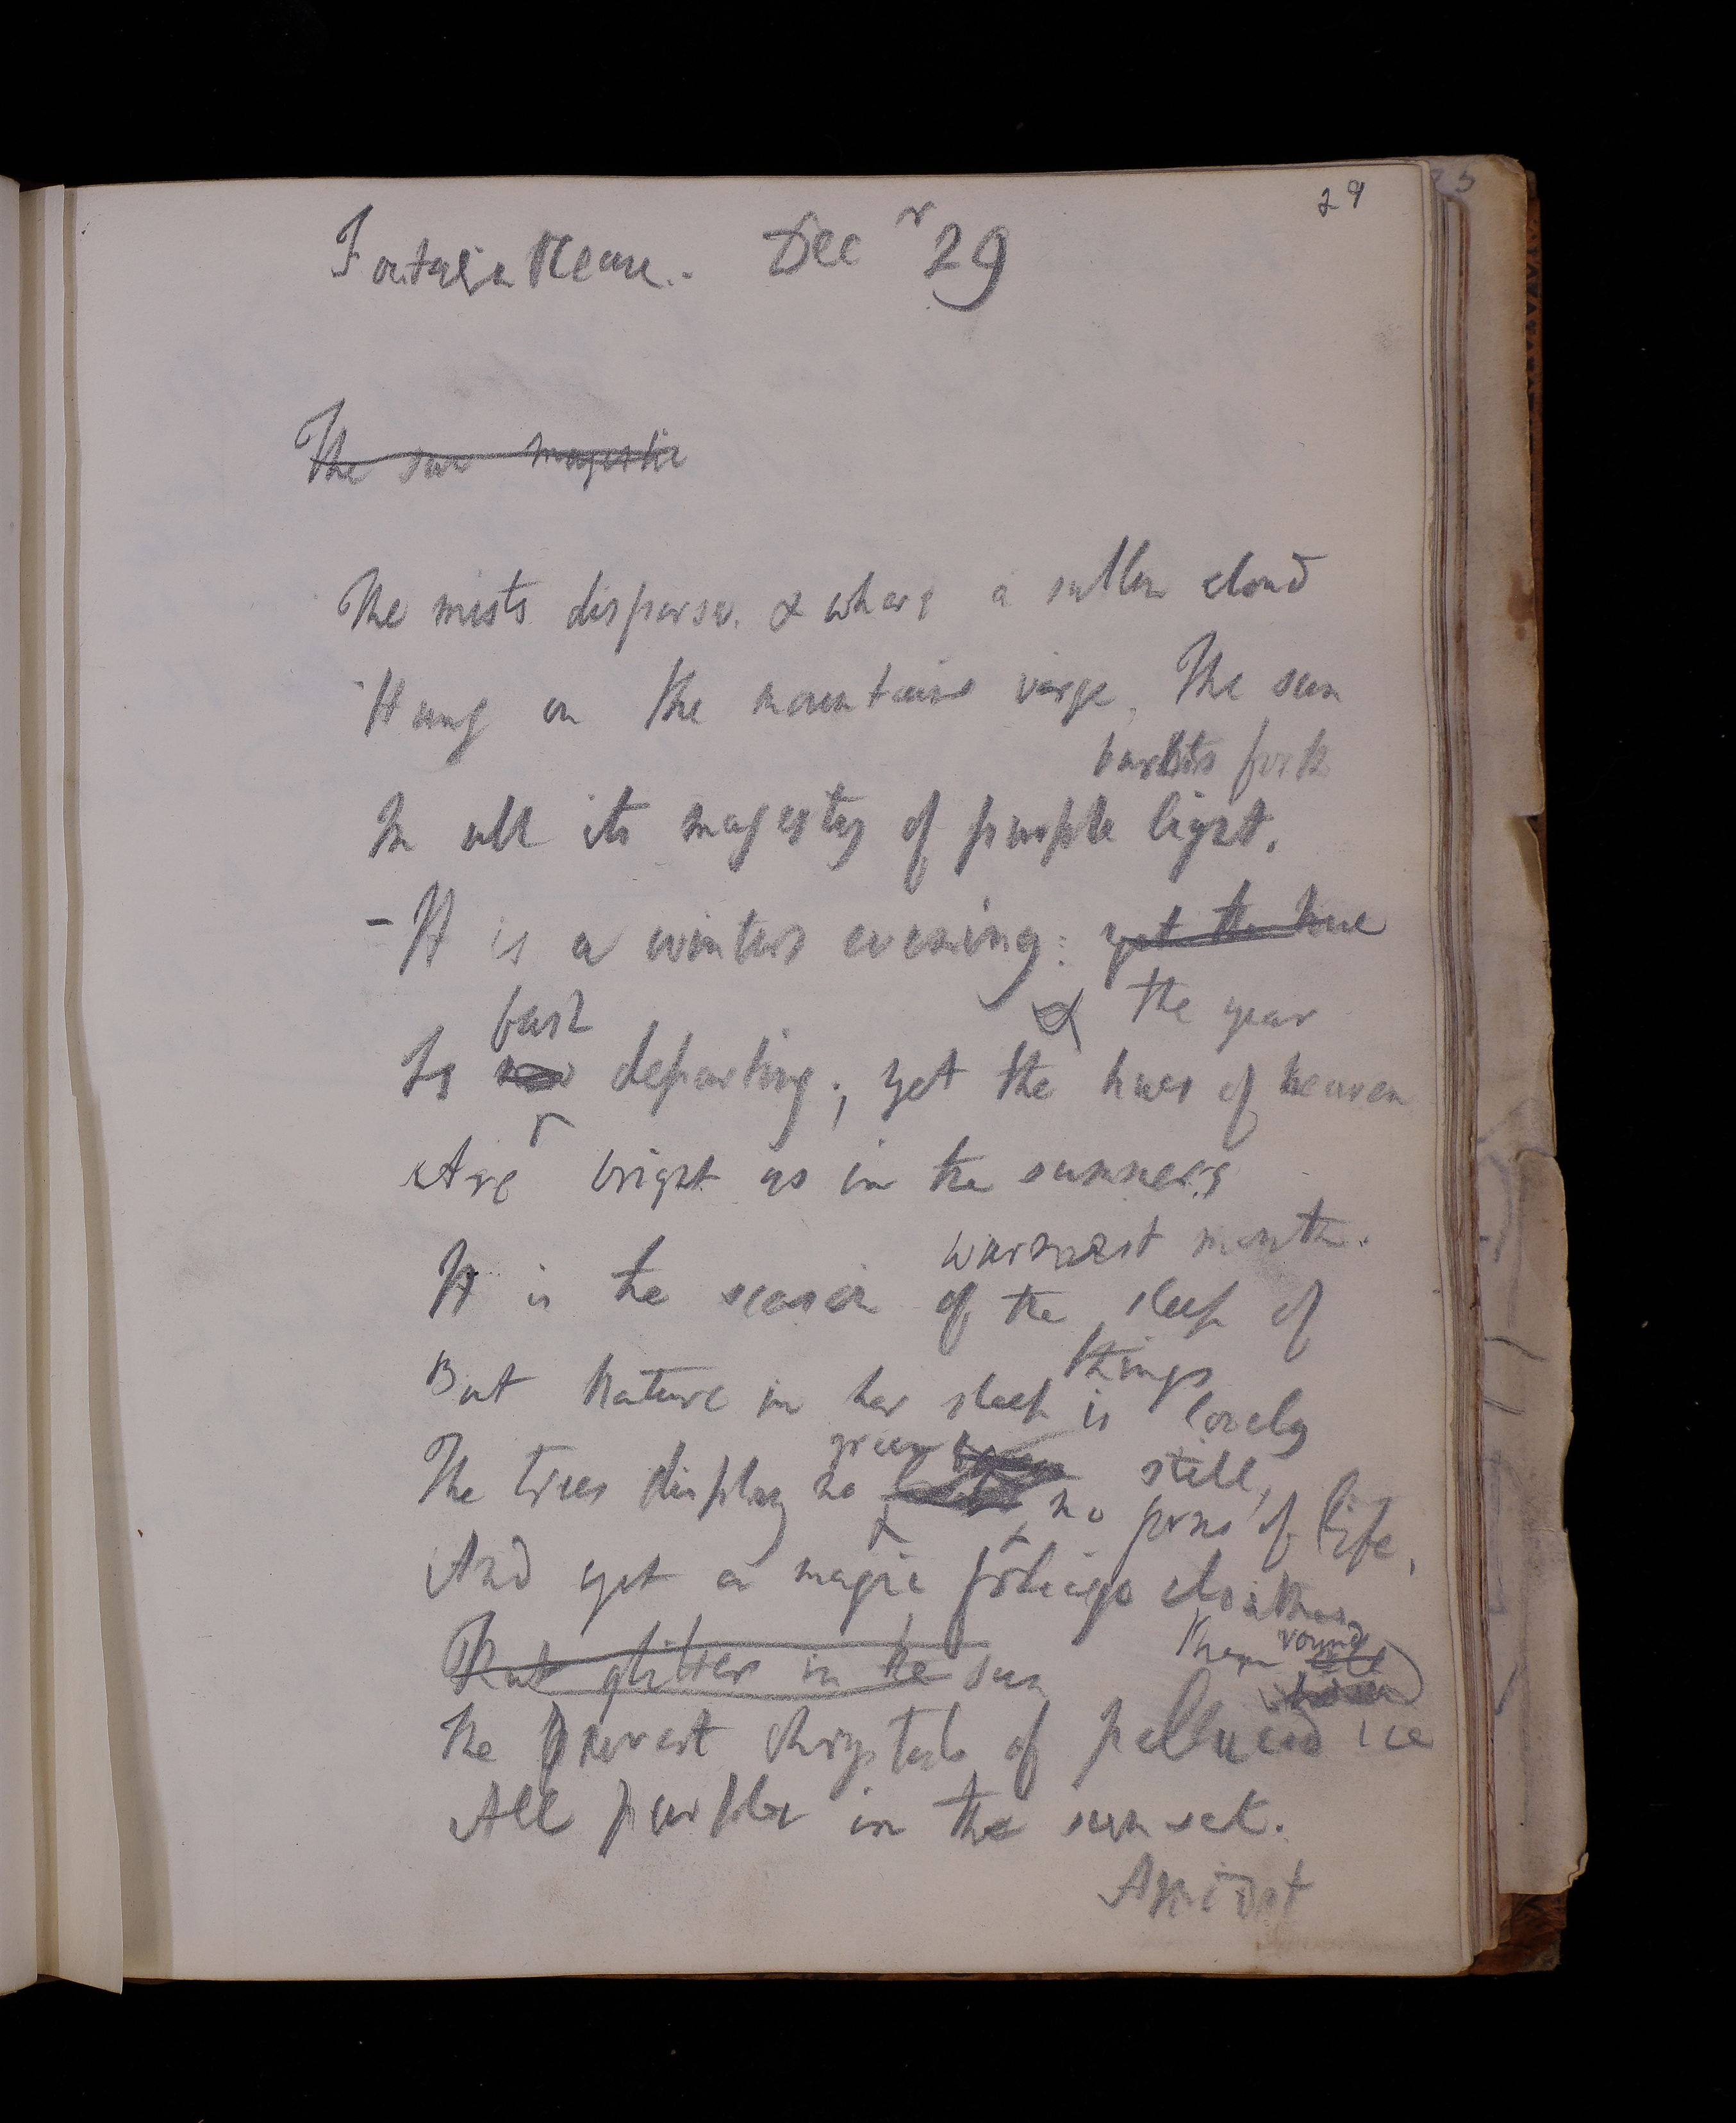 29
Fontaine bleau. Dec r 29
The sun majestic
The mists disperse. & where a sullen cloud
Hung on the mountains verge, The sun
bursts forth
In all its majesty of purple light.
- It is a winters evening: yet the hue
fast & the year
Is now departing; yet the hues of heaven
Are bright as in the summers
warmest month.
It is the season of the sleep of
things
But Nature in her sleep is lovely
still,
The trees display no green no forms of life,
And yet a magic foliage cloathes
them round
That glitters in the sun
The purest chrystals of pellucid ice
All purple in the sunset.
Amidst